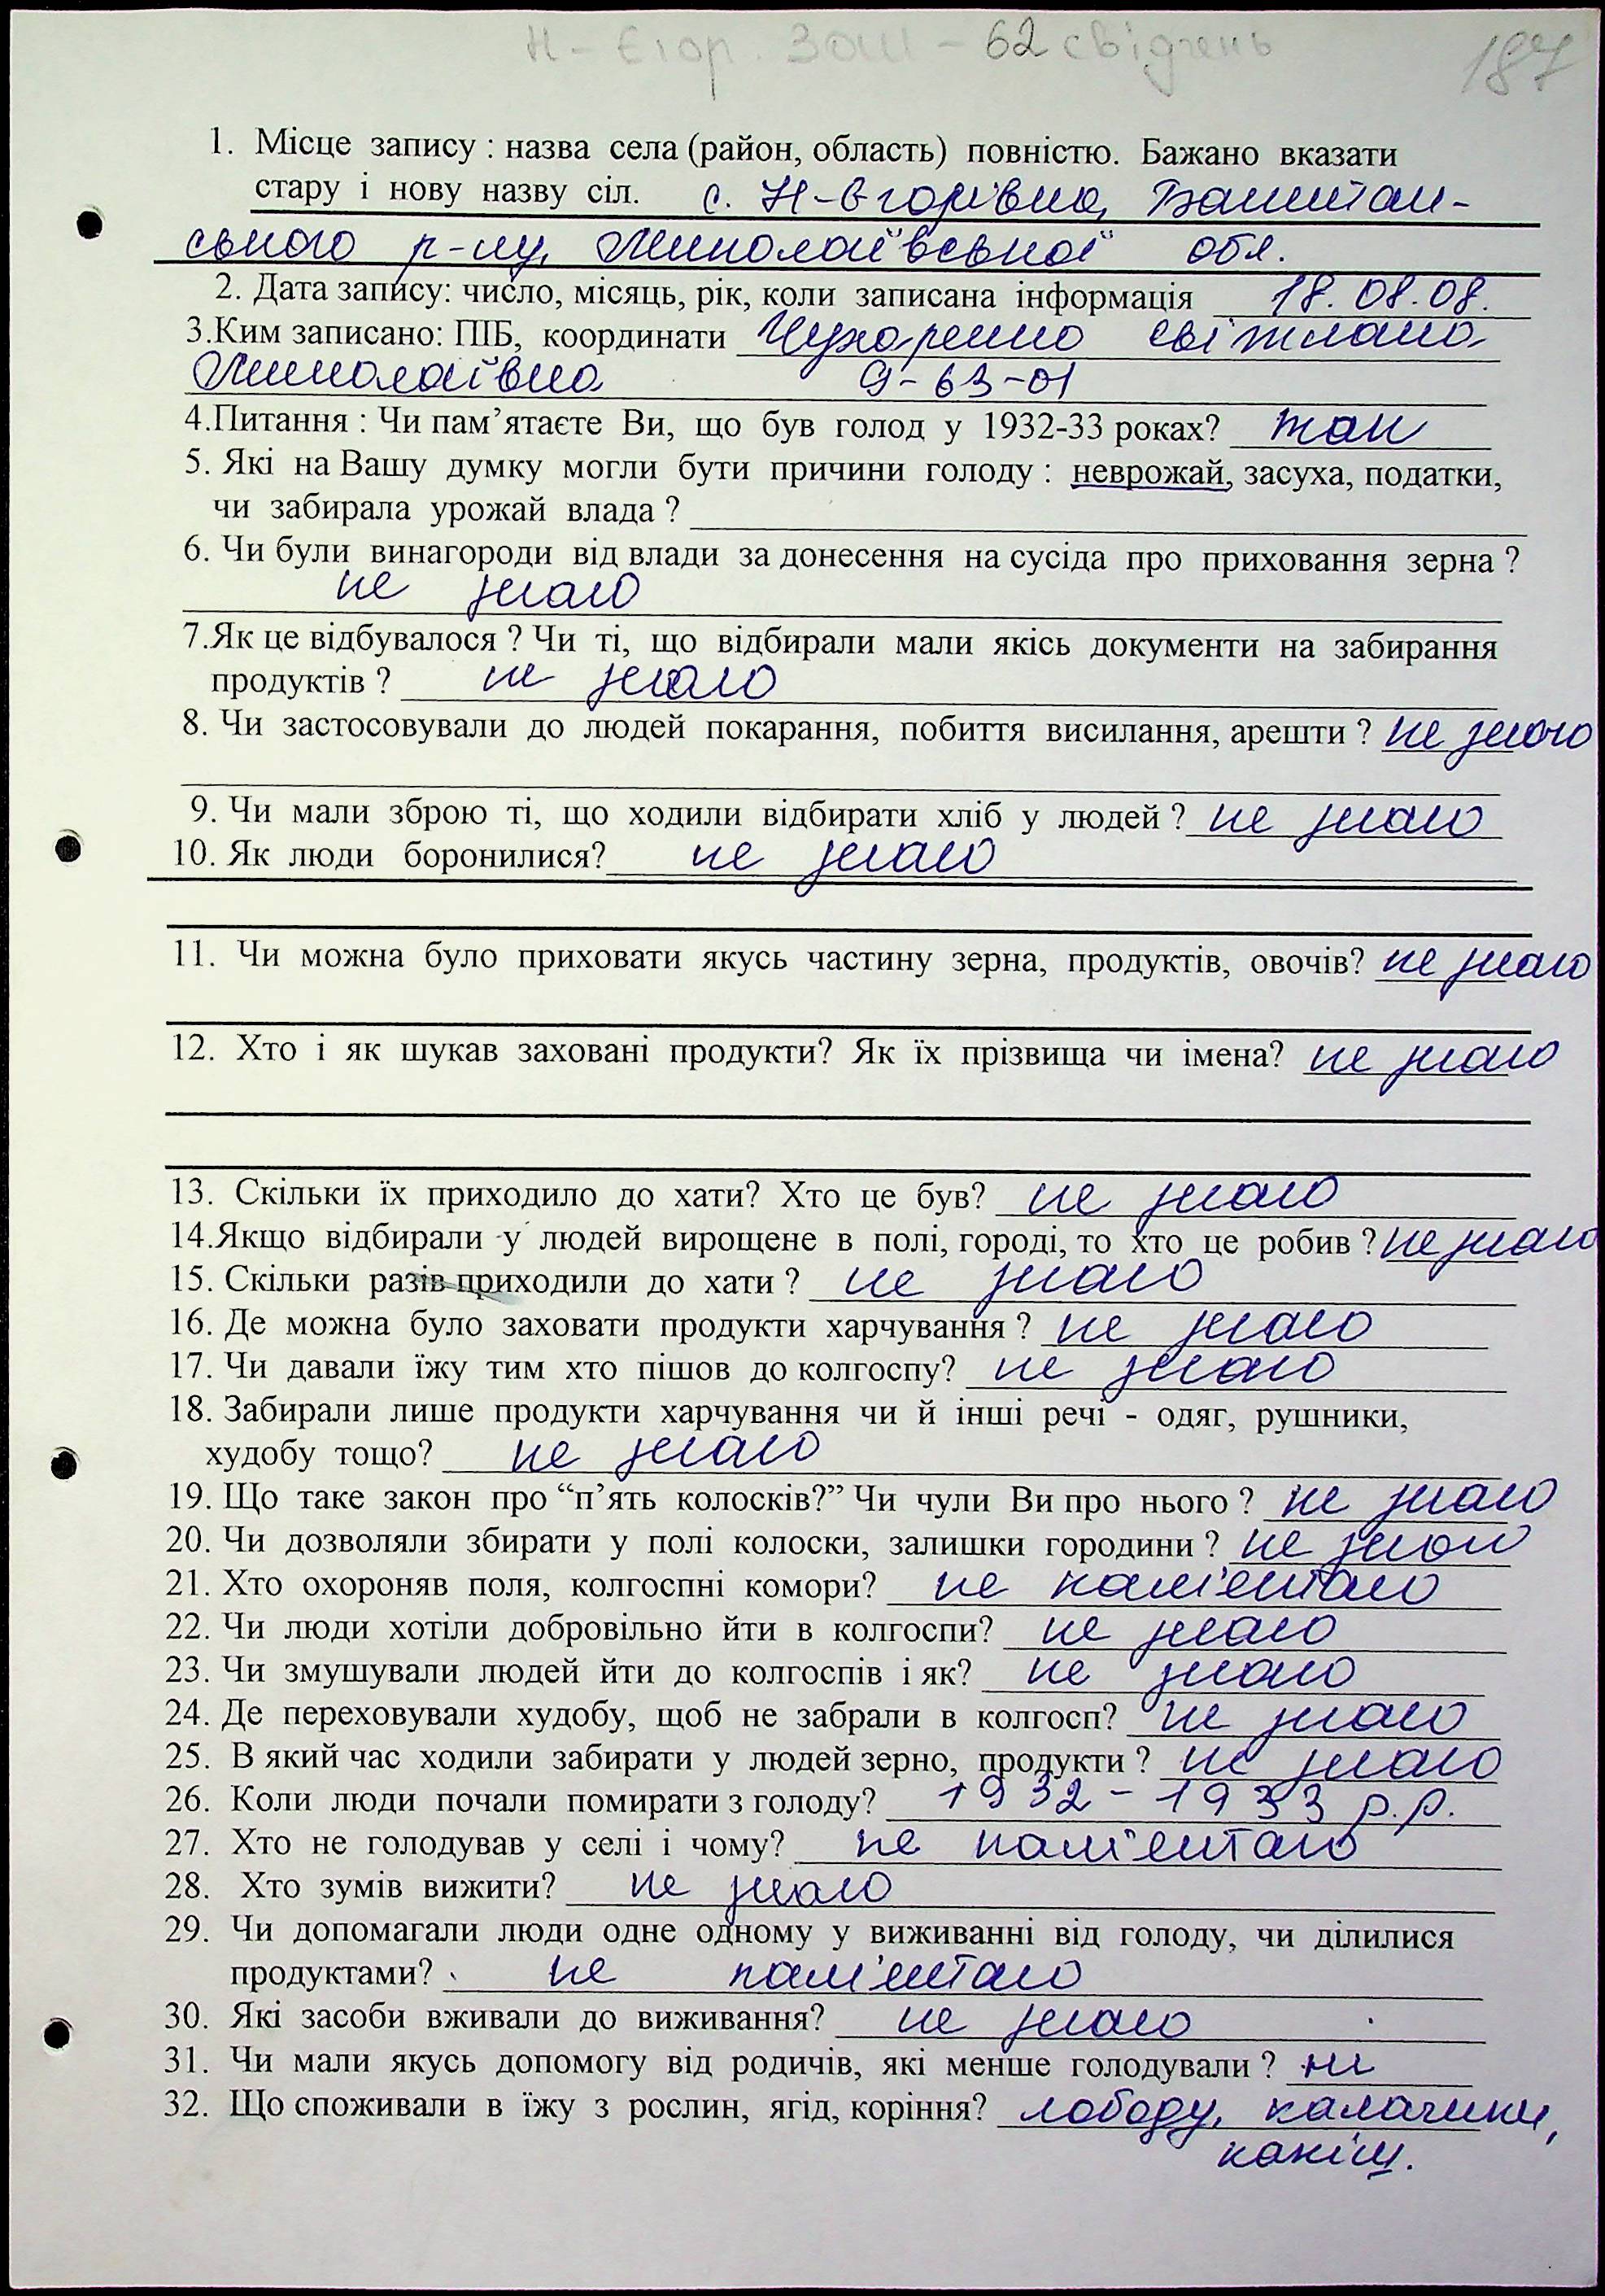 Н-Єгор. ЗОШ - 62 свідчень
187
1. Місце запису : назва села (район, область) повністю. Бажано вказати
стару і нову назву сіл. с. Н-Єгорівка, Баштан-
ського р-ну, Миколаївської обл.
2. Дата запису: число, місяць, рік, коли записана інформація 18.08.08.
3.Ким записано: ПІБ, координати Чухаренко Світлана
Миколаївна 9-63-01
4.Питання : Чи пам’ятаєте Ви, що був голод у 1932-33 роках? так
5. Які на Вашу думку могли бути причини голоду : неврожай, засуха, податки,
чи забирала урожай влада ?
6. Чи були винагороди від влади за донесення на сусіда про приховання зерна ?
не знаю
7.Як це відбувалося ? Чи ті, що відбирали мали якісь документи на забирання
продуктів ? не знаю
8. Чи застосовували до людей покарання, побиття висилання, арешти ? не знаю
9. Чи мали зброю ті, що ходили відбирати хліб у людей ? не знаю
10. Як люди боронилися? не знаю
11. Чи можна було приховати якусь частину зерна, продуктів, овочів? не знаю
12. Хто і як шукав заховані продукти? Як їх прізвища чи імена? не знаю
13. Скільки їх приходило до хати? Хто це був? не знаю
14.Якщо відбирали у людей вирощене в полі, городі, то хто це робив ? не знаю
15. Скільки разів приходили до хати ? не знаю
16. Де можна було заховати продукти харчування ? не знаю
17. Чи давали їжу тим хто пішов до колгоспу? не знаю
18. Забирали лише продукти харчування чи й інші речі - одяг, рушники,
худобу тощо? не знаю
19. Що таке закон про “п’ять колосків?” Чи чули Ви про нього ? не знаю
20. Чи дозволяли збирати у полі колоски, залишки городини ? не знаю
21. Хто охороняв поля, колгоспні комори? не пам'ятаю
22. Чи люди хотіли добровільно йти в колгоспи? не знаю
23. Чи змушували людей йти до колгоспів і як? не знаю
24. Де переховували худобу, щоб не забрали в колгосп? не знаю
25. В який час ходили забирати у людей зерно, продукти ? не знаю
26. Коли люди почали помирати з голоду? 1932 - 1933 р.р.
27. Хто не голодував у селі і чому? не пам'ятаю
28. Хто зумів вижити? не знаю
29. Чи допомагали люди одне одному у виживанні від голоду, чи ділилися
продуктами? не пам'ятаю
30. Які засоби вживали до виживання? не знаю
31. Чи мали якусь допомогу від родичів, які менше голодували ? ні
32. Що споживали в їжу з рослин, ягід, коріння? лободу, калачики,